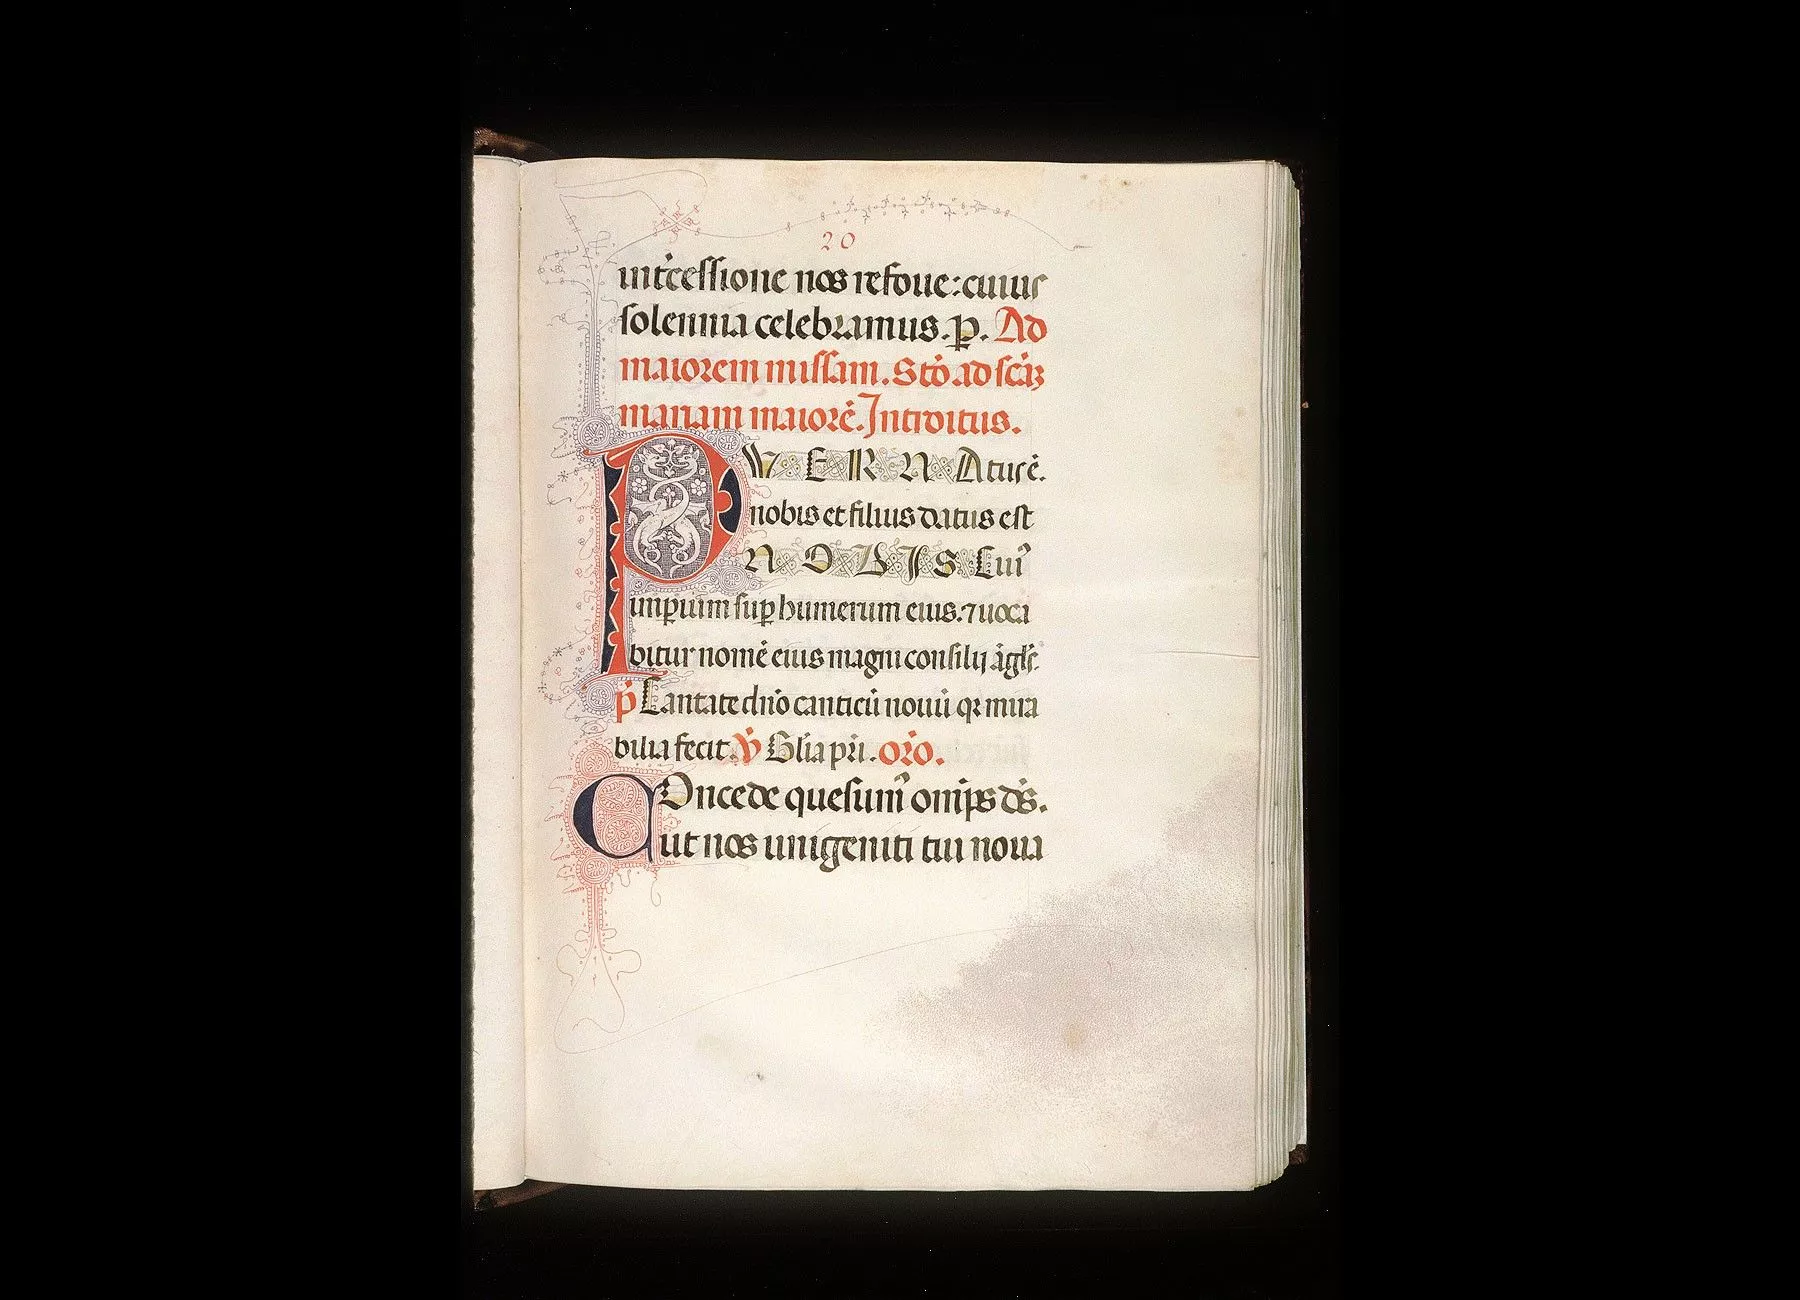 20
int̄cessione nos refoue: cuius
solennia celebramus. p̲. Ad
maiorem missam. Stō ad sc̄āꝫ
mariam maiorē. Introitus.
PVER NAtus ē.
nobis et filius datus est
NOBIS Cui᷒
imꝑium suꝑ humerum eius. ⁊ uoca
bitur nomē eius magni consilij āgls̄.
p̄s Cantate dn̄o canticū nouū qꝛ mira
bilia fecit. V̄ Glīa pr̄i. or̄o.
COncede quesum᷒ om̄ps d̄s.
ut nos unigeniti tui noua